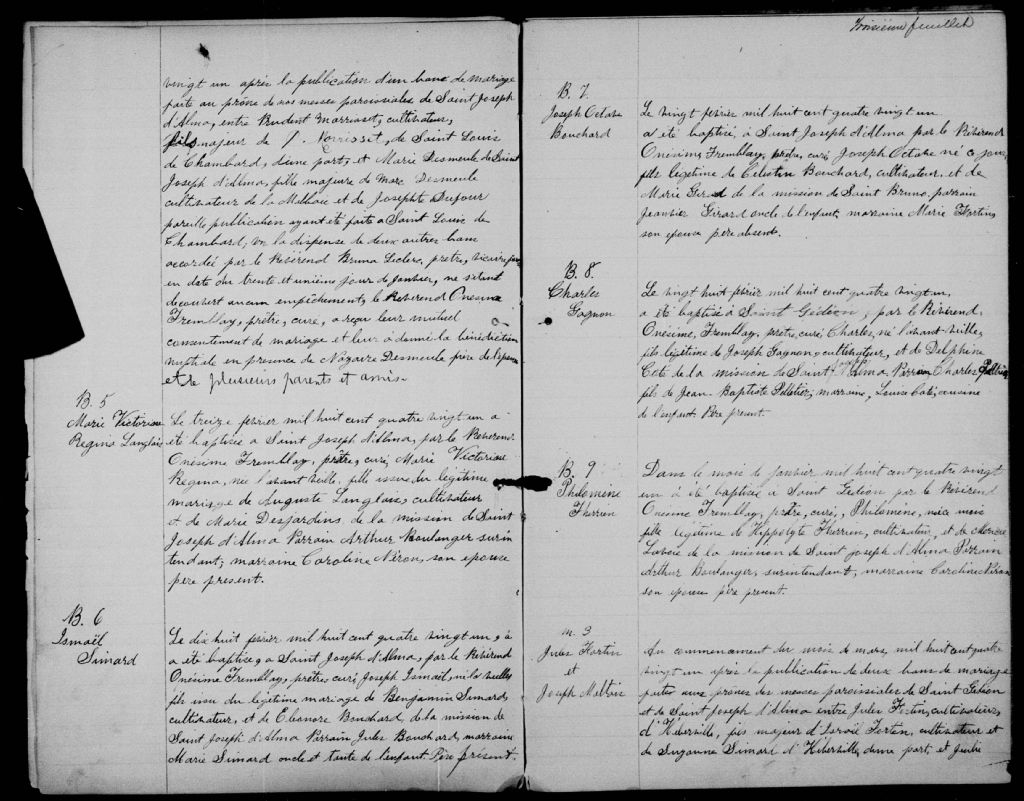 vingt un après la publication d'un banc de mariage
faite au prône de nos messes paroissiales de Saint Joseph
d'Alma, entre Prudent Morrisset, cultivateur,
fils majeur de J. Morrisset, de Saint Louis
de Chambard, d'une part, et Marie Desmeule de Saint
Joseph d'Alma, fille majeure de Marc Desmeule
cultivateur de la Malbaie et de Josephte Dufour
pareille publication ayant été faite à Saint Louis de
Chambard, vu la dispense de deux autres bans
accordée par le Révérend Bruno Leclerc, prêtre, vicaire
en date du trente et unième jour de Janvier, ne s'étant
decouvert aucun empêchement, le Révérend Onésime
Tremblay, prêtre, curé, a reçu leur mutuel
consentement de mariage et leur a donné la bénédiction
nuptiale en presence de Nazaire Desmeule frère de l'épouse
et de plusieurs parents et amis.
B. 5
Marie Victoriae
Regina Langlais
Le treize février mil huit cent quatre vingt un a
été baptisée a Saint Joseph d'Alma, par le Révérend
Onésime Tremblay, prêtre, curé, Marie Victoriae
Regina, née l'avant veille, fille issue du légitime
mariage de Auguste Langlais, cultivateur
et de Marie Desjardins de la mission de Saint
Joseph d'Alma Parrain Arthur Boulanger surin
tendant; marraine Caroline Néron, son epouse
père present.
B. 6
Ismaël
Simard
Le dix huit février mil huit cent quatre vingt un, a
a été baptisé, a Saint Joseph d'Alma, par le Révérend
Onésime Tremblay, prêtre, curé, Joseph Ismaël, né la veille,
fils issu du légitime mariage de Benjamin Simard,
cultivateur, et de Eleanore Bouchard, de la mission de
Saint Joseph d'Alma Parrain Jules Bouchard, marraine
Marie Simard oncle et tante de l'enfant. Père présent.
Troisième feuillet
B. 7
Joseph Octave
Bouchard
Le vingt février mil huit cent quatre vingt un
a été baptisé, à Saint Joseph d'Alma par le Révérend
Onésime Tremblay, prêtre, curé, Joseph Octave né ce jour,
fils legitime de Celestin Bouchard, cultivateur et de
Marie Girard de la mission de Saint Bruno, parrain
Janvier Girard oncle de l'enfant, marraine Marie Fortin
son epouse père absent.
B. 8.
Charles
Gagnon
Le vingt huit février mil huit cent quatre vingt un,
a été baptisé a Saint Gédéon, par le Révérend
Onésime, Tremblay, prêtre, curé, Charles, né l'avant veille,
fils légitime de Joseph Gagnon, cultivateur, et de Delphine
Coté de la mission de Saint Alma Parrain Charles Pelletier
fils de Jean-Baptiste Pelletier, marraine, Louise Coté, cousine
de l'enfant. Père present.
B. 9
Philomène
Therrien
Dans le mois de Janvier mil huit cent quatre vingt
un a été baptisée a Saint Gédéon par le Révérend
Onésime Tremblay, prêtre, curé, Philomène, née
fille légitime de Hippolyte Therrien, cultivateur, et de
Lavoie de la mission de Saint Joseph d'Alma Parrain
Arthur Boulanger, surintendant, marraine Caroline Néron
son epouse père present.
m. 3
Jules Fortin
et
Joseph Maltais
Au commencement du mois de mars, mil huit cent quatre
vingt un après la publication de deux bans de mariage
faites aux prônes des messes paroissiales de Saint Gédéon
et de Saint Joseph d'Alma entre Jules Fortin, cultivateur,
d'Hébertville, fils majeur d'Israël Fortin, cultivateur et
de Suzanne Simard d'Hébertville, d'une part, et Julie